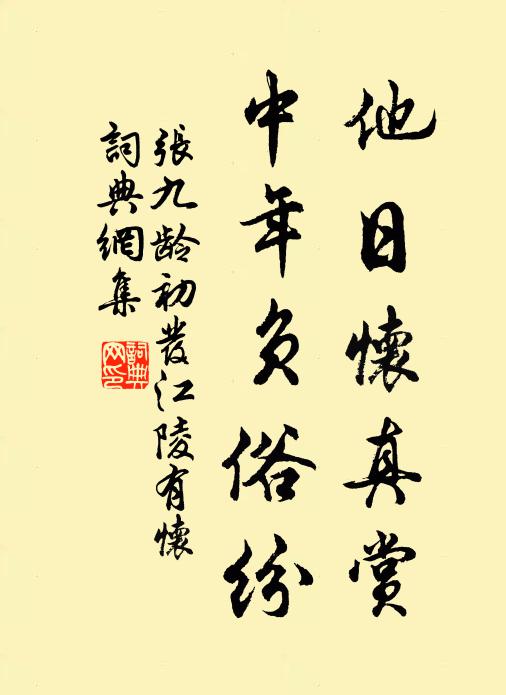 他日懷真賞
中年负俗紛
張九龄初發江陵有懷
詞典網集
詞典网印